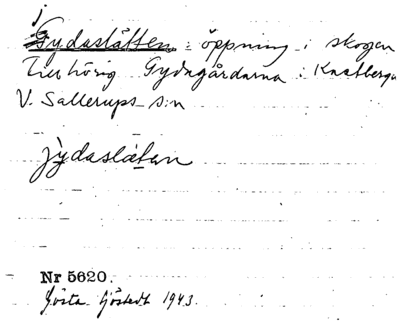 j
Gydaslätten = öppning i skogen
tillhörig Gydagårdarna i Knatberga
V. Sallerups s:n
jỳdaslätan
Nr 5620.
Gösta Sjöstedt 1943.